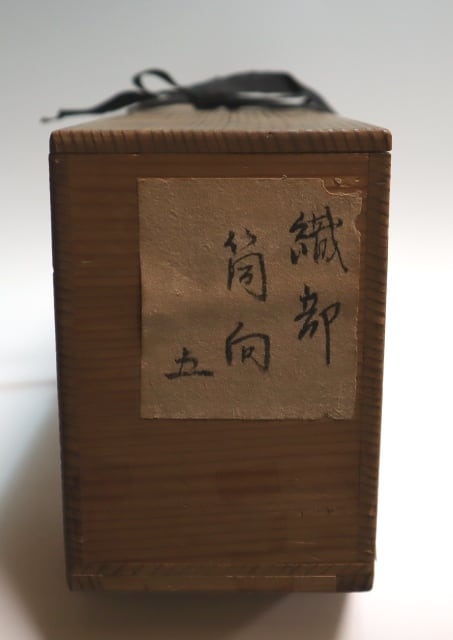 織部
筒向
五